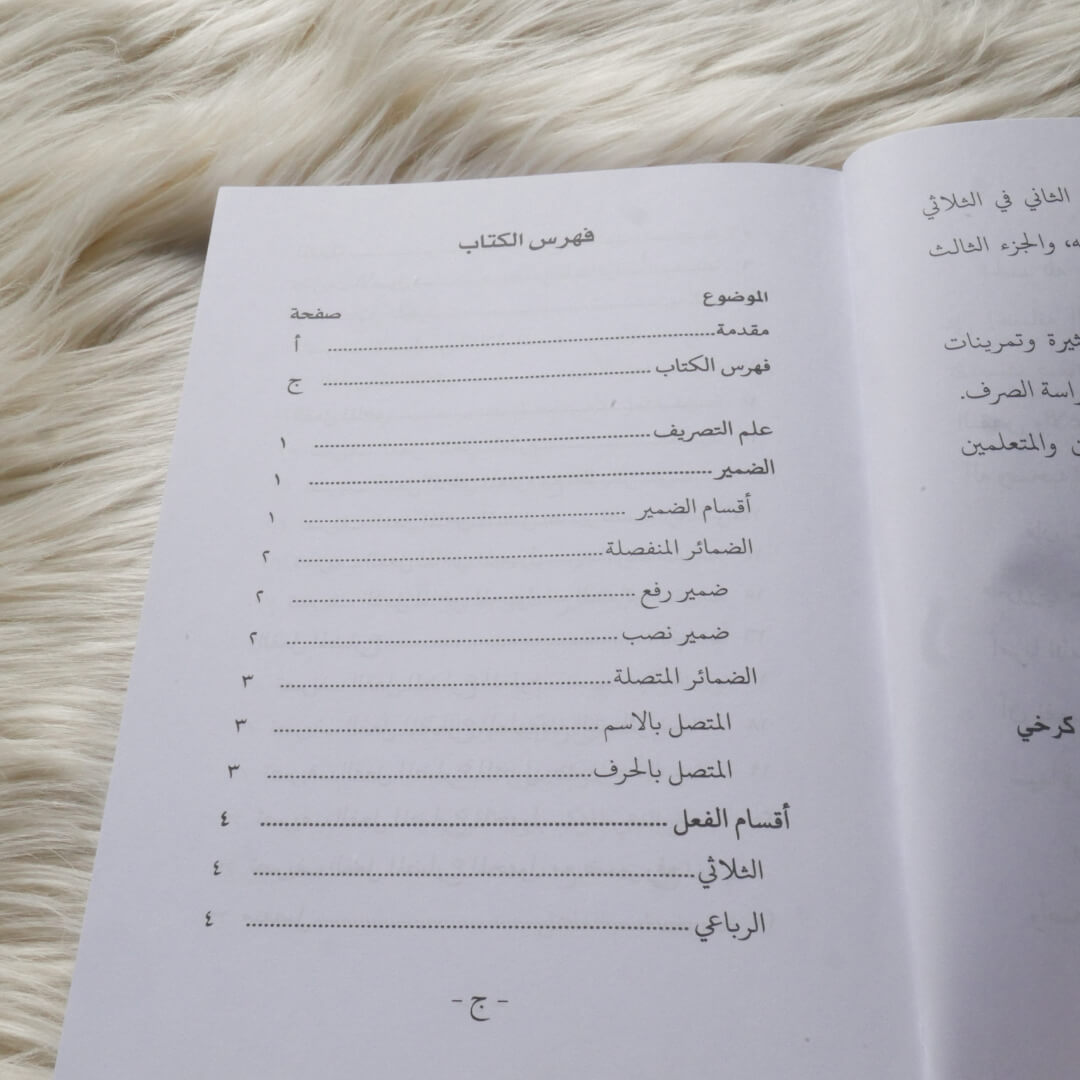 الثاني في الثلاثي
والجزء الثالث
وتمرينات
الصرف.
والمتعلمين
كرخي
فهرس الكتاب
الموضوع صفحة
مقدمة ........ أ
فهرس الكتاب ........ ج
علم التصريف ........ ١
الضمير ........ ١
أقسام الضمير ........ ١
الضمائر المنفصلة ........ ٢
ضمير رفع ........ ٢
ضمير نصب ........ ٢
الضمائر المتصلة ........ ٣
المتصل بالاسم ........ ٣
المتصل بالحرف ........ ٣
أقسام الفعل ........ ٤
الثلاثي ........ ٤
الرباعي ........ ٤
- ج -